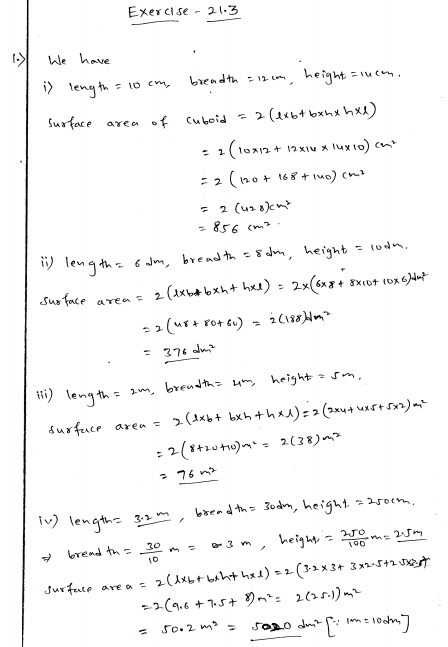 Exercise - 21.3
1.) We have
i) length = 10 cm, breadth = 12 cm, height = 14 cm.
Surface area of cuboid = 2 (l×b + b×h × h×l)
= 2 (10×12 + 12×14 × 14×10) cm²
= 2 (120 + 168 + 140) cm²
= 2 (428) cm²
= 856 cm².
ii) length = 6 dm, breadth = 8 dm, height = 10 dm.
Surface area = 2 (l×b + b×h + h×l) = 2×(6×8 + 8×10 + 10×6) dm²
= 2 (48 + 80 + 60) = 2 (188) dm²
= 376 dm²
iii) length = 2m, breadth = 4m, height = 5m.
Surface area = 2 (l×b + b×h + h×l) = 2 (2×4 + 4×5 + 5×2) m²
= 2 (8 + 20 + 10) m² = 2 (38) m²
= 76 m²
iv) length = 3.2 m, breadth = 30 dm, height = 250 cm.
⇒ breadth = 30/10 m = 3 m, height = 250/100 m = 2.5m
Surface area = 2 (l×b + b×h + h×l) = 2 (3.2×3 + 3×2.5 + 2.5×3.2)
= 2 (9.6 + 7.5 + 8) m² = 2 (25.1) m²
= 50.2 m² = 5020 dm² [∵ 1m = 10dm]